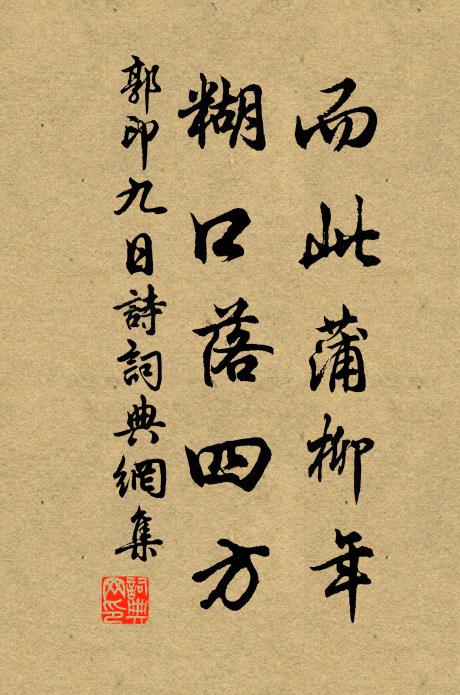 而此蒲柳年
糊口落四方
郭印九日詩詞典網集
詞典网印